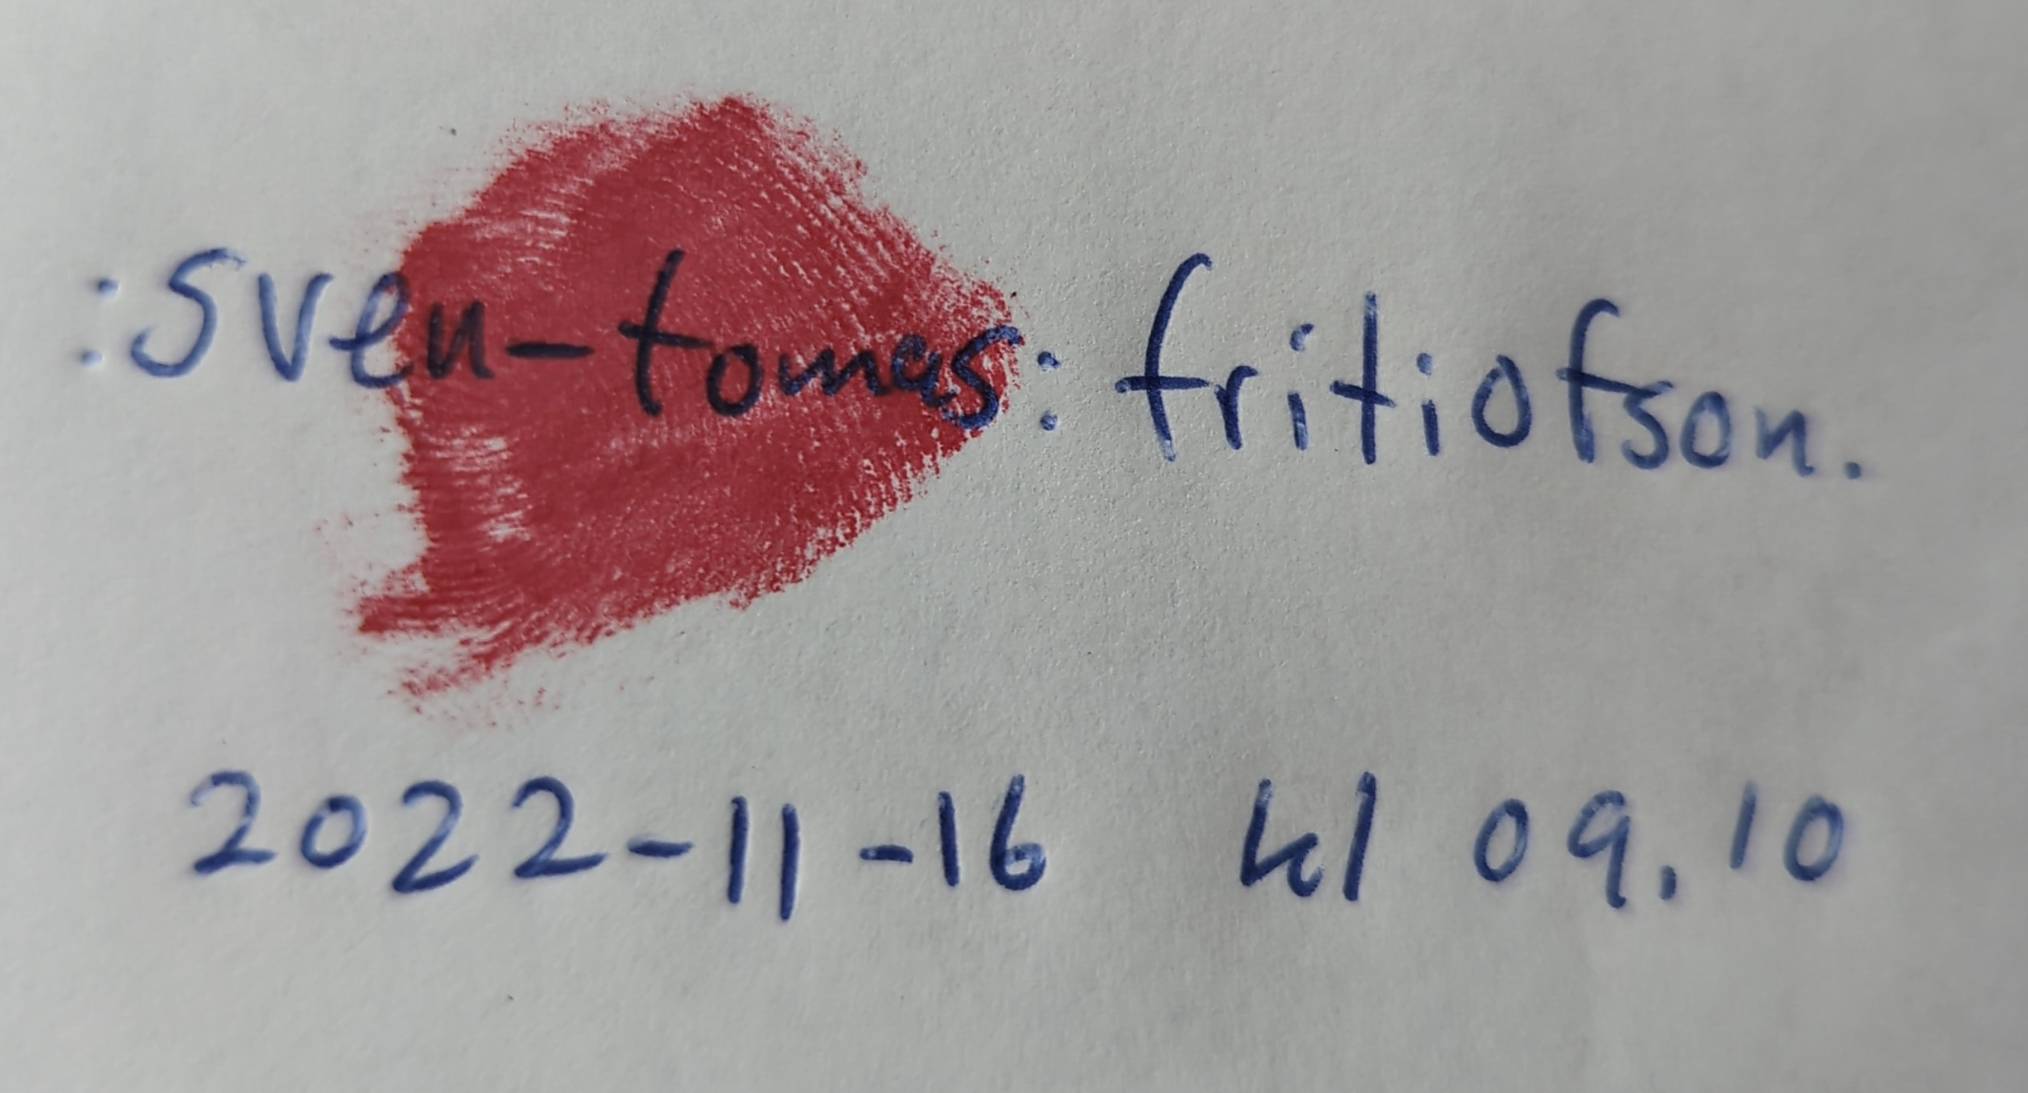 :sven-tomas: fritiofson.
2022-11-16 kl 09.10